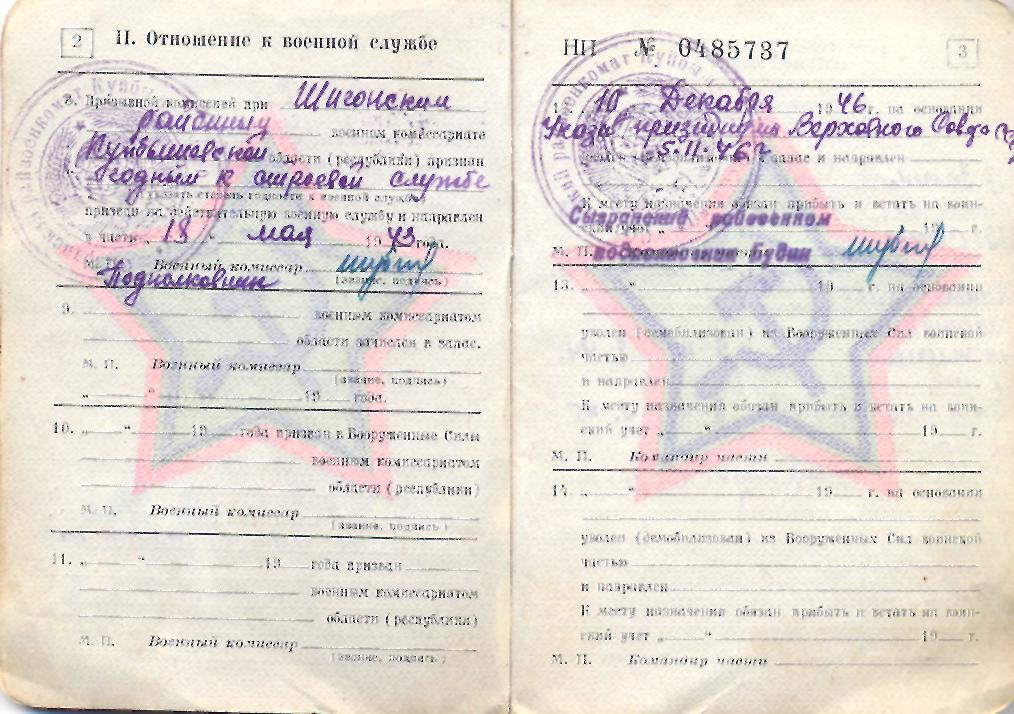 2
II. Отношение к военной службе
8. Призывной комиссией при Шигонским
райсним военном комиссариате
Куйбышевской области (республики) признан
годным к строевой службе
(указать степень годности к военной службе)
призван на действительную военную службу и направлен
в часть „ 18 " мая 1943 года.
М. П. Военный комиссар
Подполковник (звание, подпись)
9. военным комиссариатом
области зачислен в запас.
М. П. Военный комиссар
(звание, подпись)
„ " 19 года.
10. „ " 19 года призван в Вооруженные Силы
военным комиссариатом
области (республики)
М. П. Военный комиссар
(звание, подпись)
11. „ " 19 года призван
военным комиссариатом
области (республики)
М. П. Военный комиссар
(звание, подпись)
НИ № 0485737
3
12. 10 Декабря 1946 г. на основании
Указа президиума Верховного
5-11-46г
запас и направлен
К месту назначения обязан прибыть и встать на воин-
ский учет „ 19 г.
М. П.
13. „ " 19 г. на основании
уволен (демобилизован) из Вооруженных Сил воинской
частью
и направлен
К месту назначения обязан прибыть и встать на воин-
ский учет „ " 19 г.
М. П. Командир части
14. „ " 19 г. на основании
уволен (демобилизован) из Вооруженных Сил воинской
частью
и направлен
К месту назначения обязан прибыть и встать на воин-
ский учет „ " 19 г.
М. П. Командир части